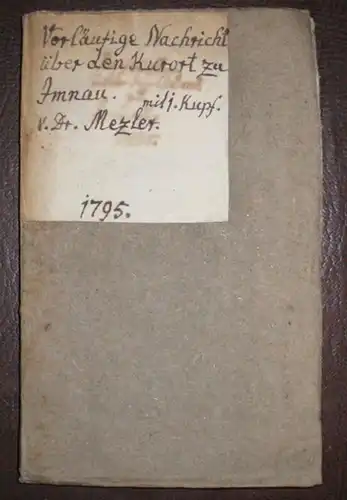 Vorläufige Nachricht
über den Kurort zu
Imnau. mit 1. Kupf.
v. Dr. Mezler.
1795.